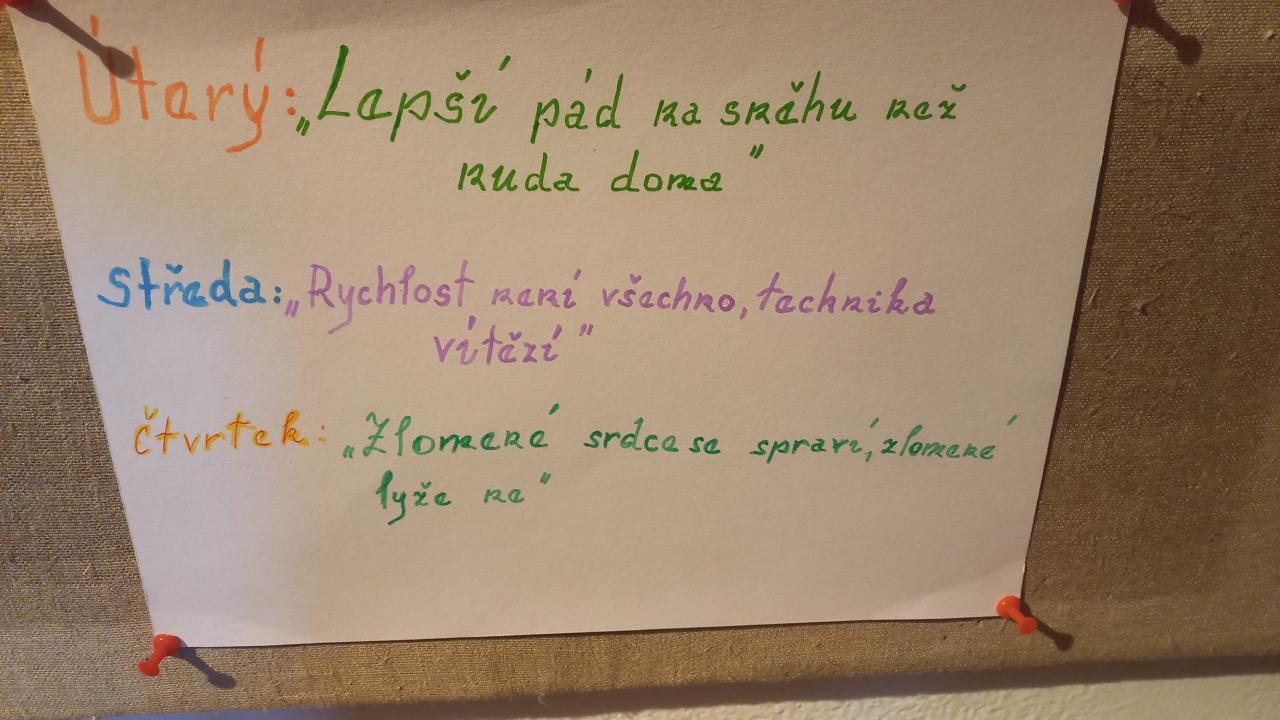 Úterý: „Lepší pád na sněhu než
nuda doma"
Středa: „Rychlost není všechno, technika
vítězí"
Čtvrtek: „Zlomené srdce se spraví, zlomené
lyže ne"